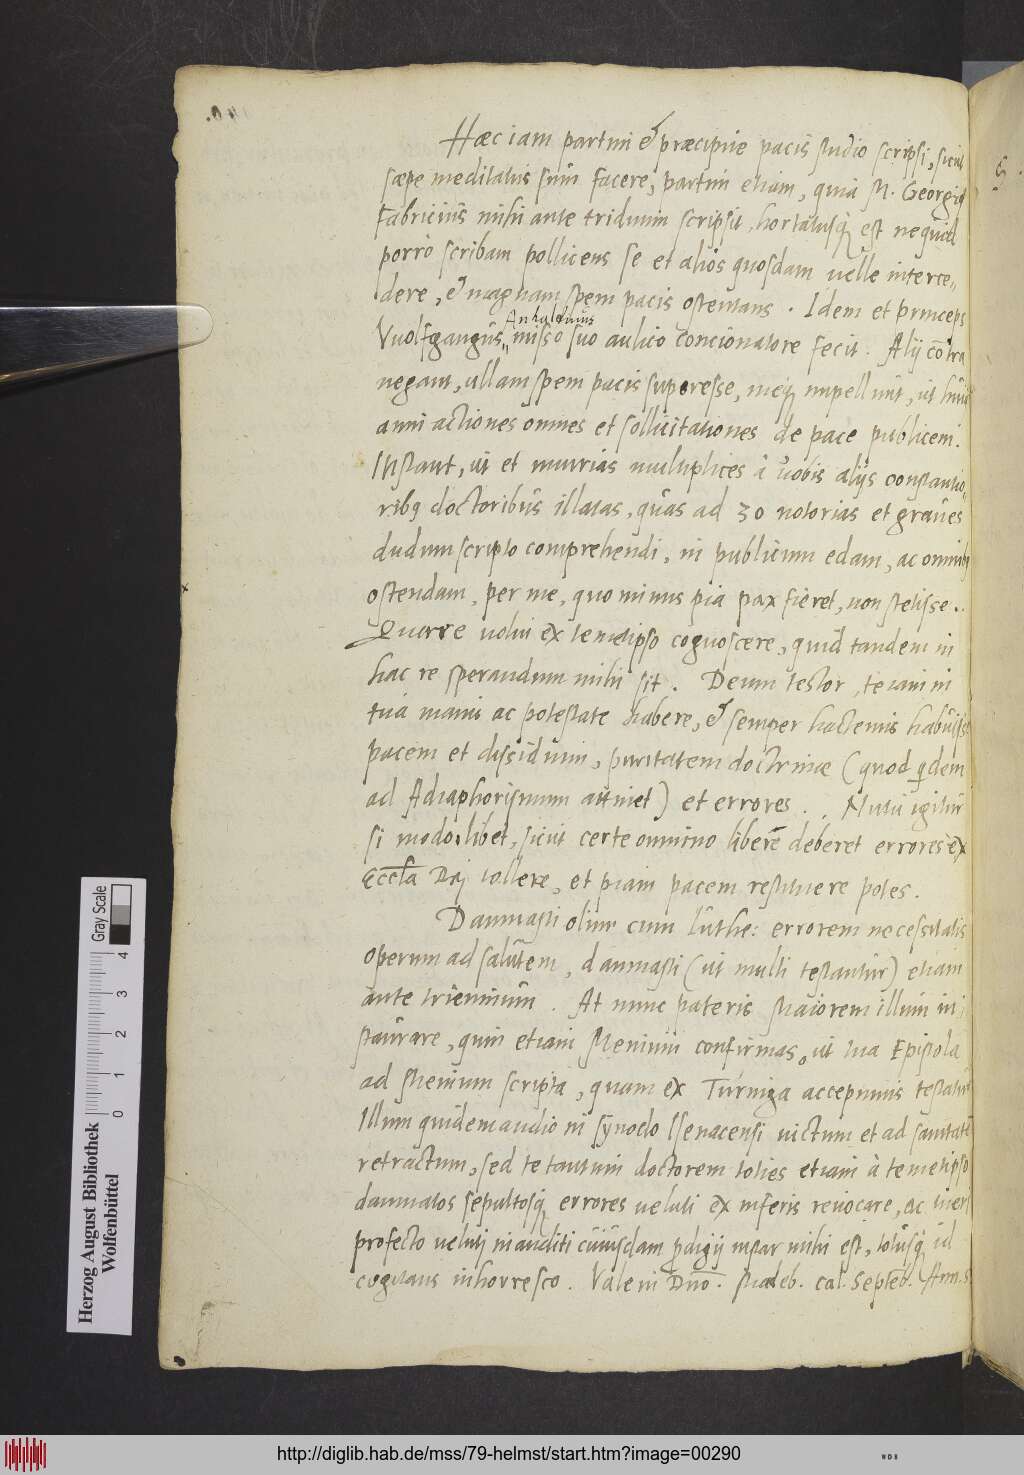 Hæc iam partim & præcipue pacis studio scripsi, sicut
sæpe meditatus sum facere, partim etiam, quia M. Georgius
Fabricius mihi ante triduum scripsit, hortatusq; est nequid
porrò scribam pollicens se et alios quosdam uelle interce„
dere, & magnam spem pacis ostentans. Idem et princeps
Anhaldinus
Vuolfgangus, misso suo aulico concionatore fecit. Alij cōtra
negant, ullam spem pacis superesse, meq; impellunt, ut huius
anni actiones omnes et sollicitationes de pace publicem.
Instant, ut et iniurias multiplices à uobis alijs constantio„
ribq doctoribus illatas, quas ad 30 notorias et graues
dudum scripto comprehendi, in publicum edam, ac omnibq
ostendam, per me, quo minus pia pax fieret, non stetisse.
Quare uolui ex temetipso cognoscere, quid tandem in
hac re sperandum mihi sit. Deum testor, te iam in
tua manu ac potestate habere, & semper hactenus habuisse
pacem et dissidium, puritatem doctrinæ (quod qdem
ad Adiaphorismum attinet) et errores. Nutu igitur
si modo libet, sicut certe omnino libere deberet errores ex
Eccła Dej tollere, et piam pacem restituere potes.
Damnasti olim cum Luthe: errorem necessitatis
operum ad salutem, damnasti (ut multi testantur) etiam
ante triennium. At nunc pateris Maiorem illum in„
staurare, quin etiam Menium confirmas, ut tua Epistola
ad Menium scripta, quam ex Turinga accepimus testatur
Illum quidem audio in synodo Isenacensi uictum et ad sanitatē
retractum, sed te tantum doctorem toties etiam à temetipso
damnatos sepultosq; errores ueluti ex inferis reuocare, ac
profecto ueluti inauditi cuiusdam pdigij instar mihi est, totusq; id
cogitans inhorresco. Vale in Dno. Madeb. cal. Septēb. Ann.
Herzog August Bibliothek
Wolfenbüttel
Gray Scale
0 1 2 3 4
http://diglib.hab.de/mss/79-helmst/start.htm?image=00290